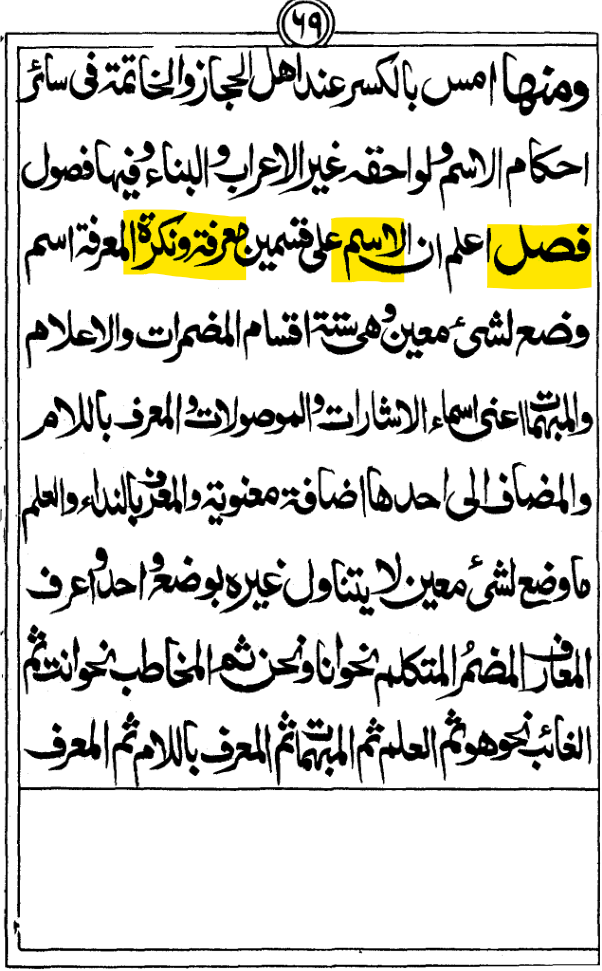 ٦٩
ومنها امس بالكسر عند اهل الحجاز والخاتمة فى سائر
احكام الاسم ولواحقه غير الاعراب والبناء وفيها فصول
فصل اعلم ان الاسم على قسمين معرفة ونكرة المعرفة اسم
وضع لشىء معين وهى ستة اقسام المضمرات والاعلام
والمبهمات اعنى اسماء الاشارات والموصولات والمعرف باللام
والمضاف الى احدها اضافة معنوية والمعرف بالنداء والعلم
ما وضع لشىء معين لا يتناول غيره بوضع واحد واعرف
المعارف المضمر المتكلم نحو انا ونحن ثم المخاطب نحو انت ثم
الغائب نحو هو ثم العلم ثم المبهمات ثم المعرف باللام ثم المعرف